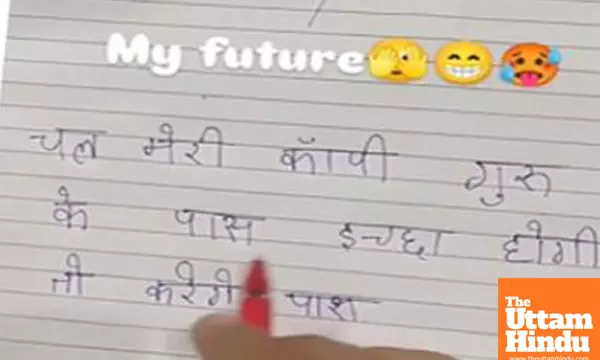 My future🫣😁🥵
चल मेरी कॉपी गुरु
के पास इच्छा होगी
तो करेगे पाश
The
Uttam
Hindu
www.theuttamhindu.com